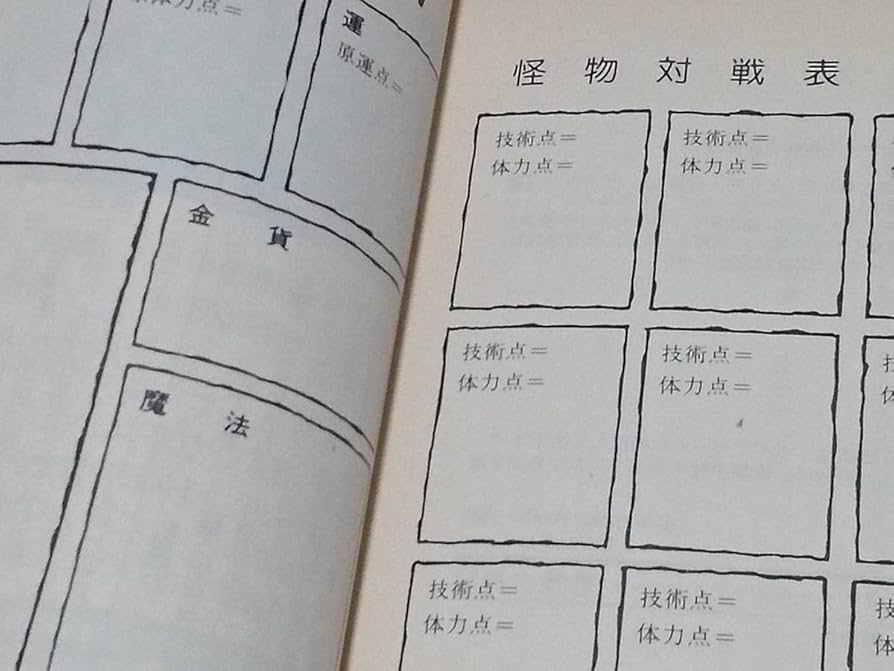 体力点＝
運
原運点＝
金貨
魔法
怪物対戦表
技術点＝
体力点＝
技術点＝
体力点＝
体
技術点＝
体力点＝
技術点＝
体力点＝
技
体
技術点＝
体力点＝
技術点＝
体力点＝
技
体